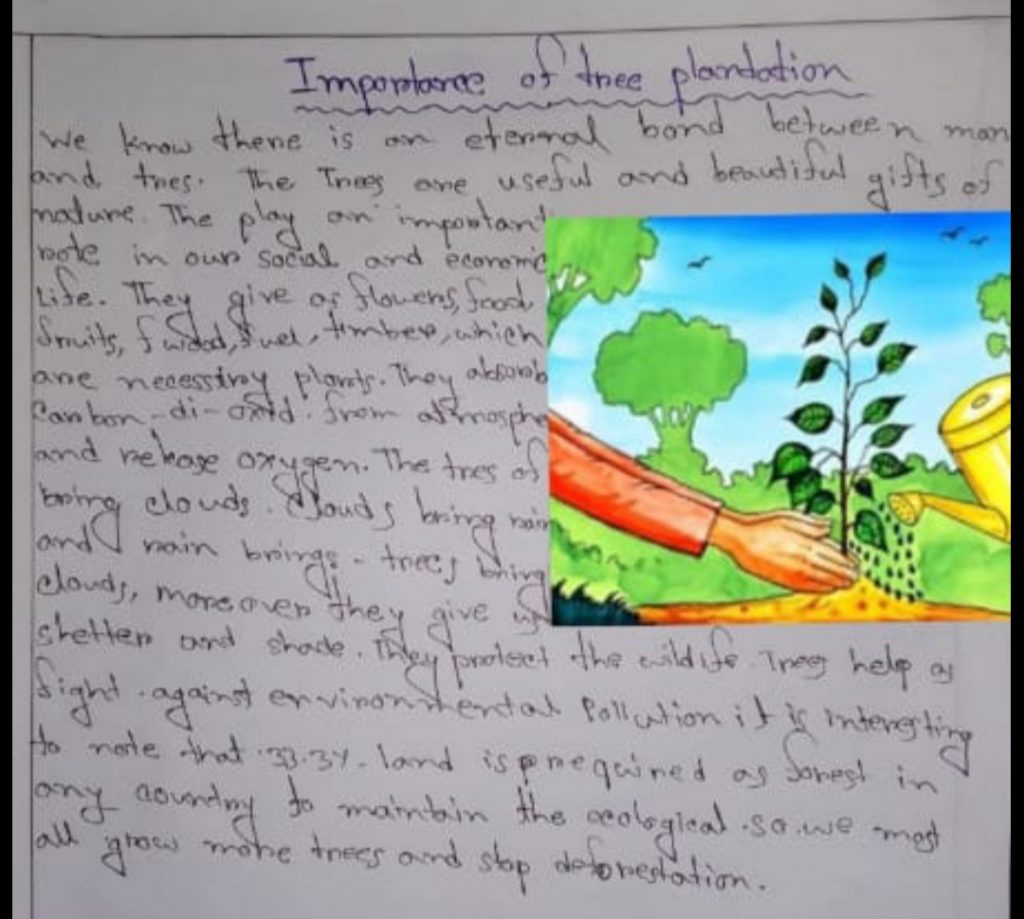 Importance of tree plantation
We know there is an eternal bond between man
and tries. The Trees are useful and beautiful gifts of
nature. The play an important
role in our social and economic
Life. They give as flowers, food
fruits, fuel, timber, which
are necessiry plants. They absorb
Canbon-di-oxid. from atmosphe
and release oxygen. The tres of
bring clouds. Clouds bring rain
and rain brings - trees bring
clouds, moreover they give us
shetter and shade. They protect the wildlife. Trees help as
fight against environmental Pollution it is interesting
to note that 33.3%. land is required as forest in
any country to maintain the ecological so we most
all grow more trees and stop deforestation.